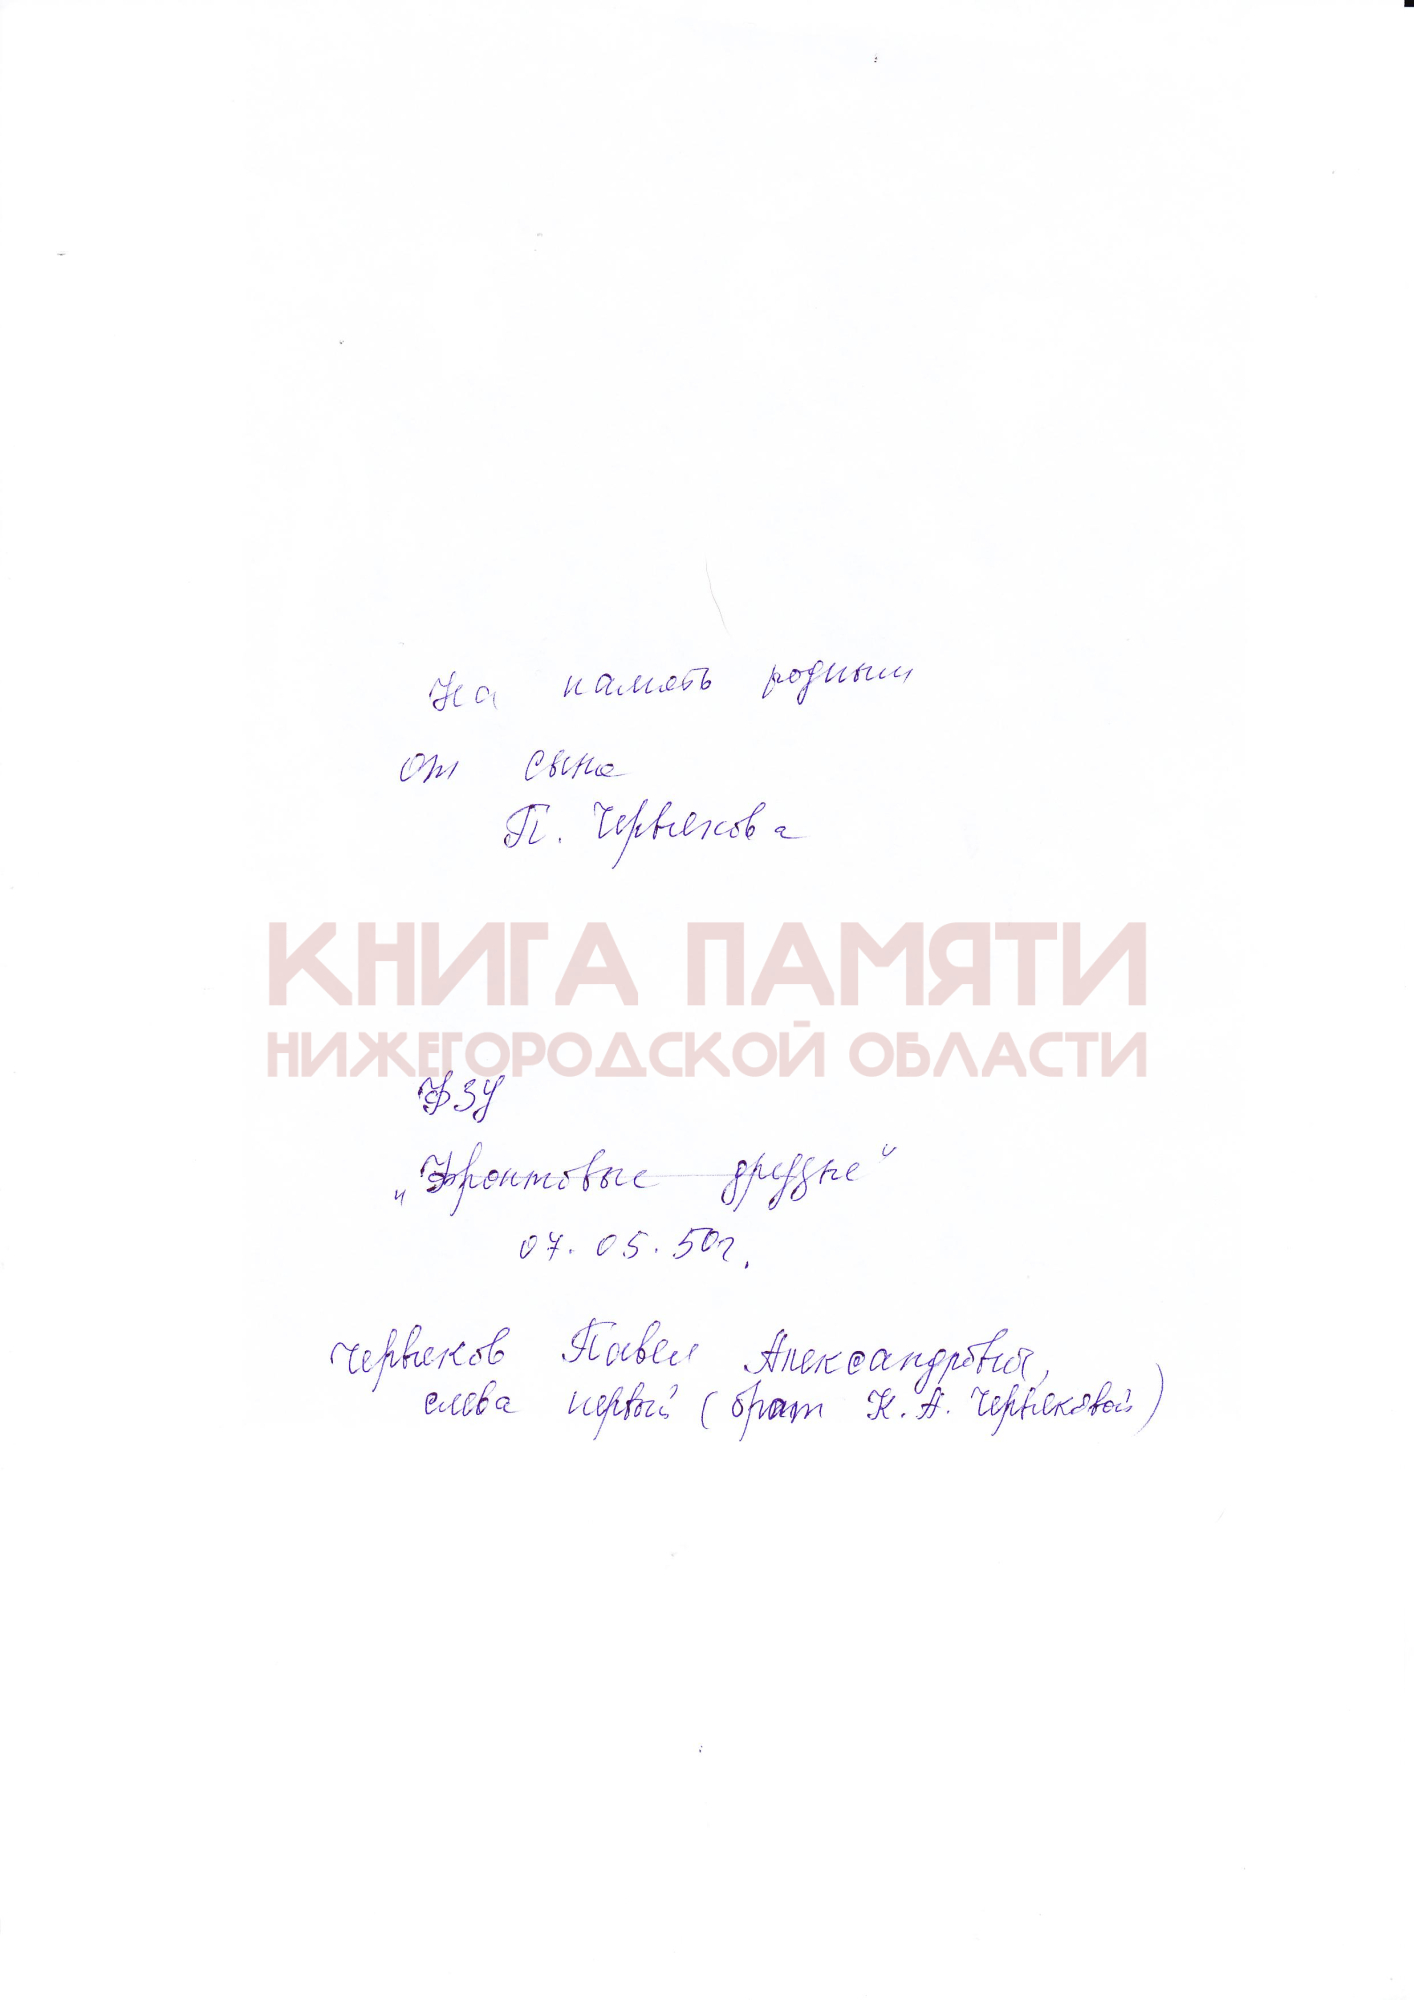 На память родным
от сына
П. Червякова
КНИГА ПАМЯТИ
НИЖЕГОРОДСКОЙ ОБЛАСТИ
ФЗУ
„Фронтовые друзья"
07.05.50г.
Червяков Павел Александрович,
слева первый (брат К.А. Червяковой)